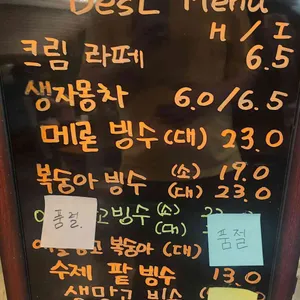 Best Menu
H / I
크림 라떼 6.5
생자몽차 6.0/6.5
메론 빙수 (대) 23.0
복숭아 빙수 (소) 19.0
(대) 23.0
품절
빙수 (소)
(대)
품절
복숭아 (대)
수제 팥 빙수 13.0
생망고 빙수